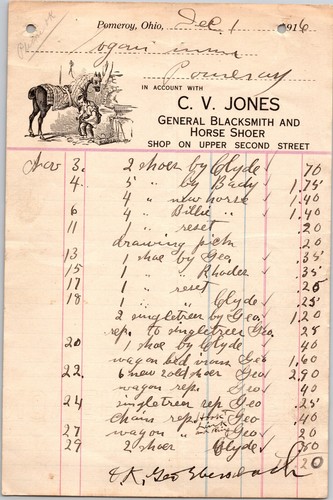 Pomeroy, Ohio, Dec 1 1916
Pomeroy
IN ACCOUNT WITH
C. V. JONES
GENERAL BLACKSMITH AND
HORSE SHOER
SHOP ON UPPER SECOND STREET
Nov 3. 2 shoes by Clyde ✓ 70
4. 5 " by Bady ✓ 1.75
4 " new horse ✓ 1.40
6 4 " Billie " ✓ 1.40
11 1 " reset ✓ .20
drawing pick .20
13 1 shoe by Geo. ✓ .35
15 1 " " Rhoder ✓ .35
17 1 " reset ✓ .25
18 1 " " Clyde ✓ .25
2 singletrees by Geo. ✓ 1.20
rep. to singletree Geo. .25
20 1 shoe by Clyde ✓ .40
wagon bed irons Geo ✓ 1.60
22. 6 new 20ld shoes Geo ✓ 2.90
wagon rep. Geo ✓ .40
24 singletree rep Geo ✓ .25
chains rep. Geo .40
27 wagon " Geo .20
29 2 shoes Clyde
O.K. Geo